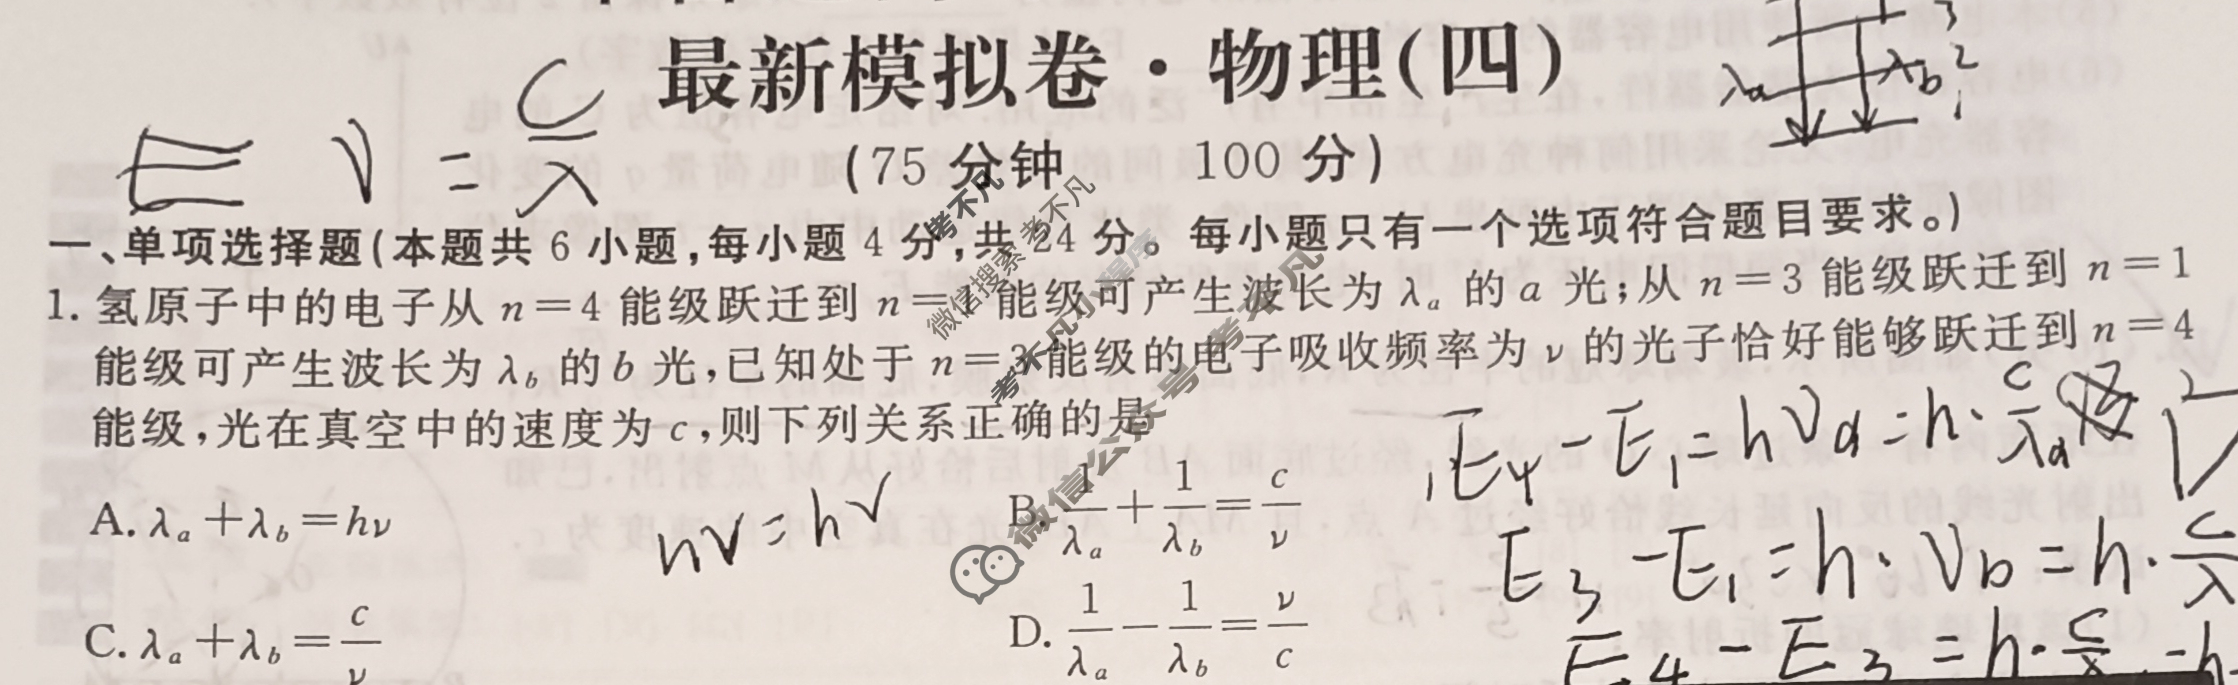 最新模拟卷·物理(四)
(75分钟 100分)
ν = c/λ
λa λb 3 2 1
一、单项选择题(本题共6小题,每小题4分,共24分。每小题只有一个选项符合题目要求。)
1.氢原子中的电子从n=4能级跃迁到n=能级可产生波长为λa的a光;从n=3能级跃迁到n=1
能级可产生波长为λb的b光,已知处于n=3能级的电子吸收频率为ν的光子恰好能够跃迁到n=4
能级,光在真空中的速度为c,则下列关系正确的是
E4-E1=hνa=h·c/λa
A.λa+λb=hν
hν=hν
B.1/λa+1/λb=c/ν
E3-E1=h·νb=h·c/λ
C.λa+λb=c/ν
D.1/λa-1/λb=ν/c
E4-E3=h·c/λ-h
考不凡
微信搜索 考不凡
考不凡小程序
微信公众号 考不凡